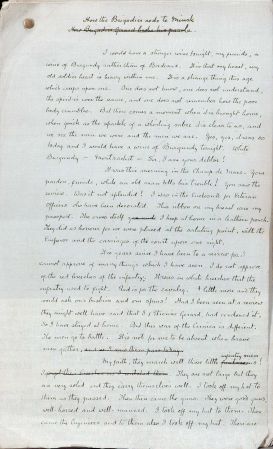 How the Brigadier rode to Minsk
How Brigadier Gerard broke his parole
I would have a stronger wine tonight, my friends, a
wine of Burgundy rather than of Bordeaux. It is that my heart, my
old soldier heart is heavy within me. It is a strange thing this age
which creeps upon one. One does not know, one does not understand,
the spirit is ever the same, and one does not remember how the poor
body crumbles. But there comes a moment when it is brought home,
when quick as the sparkle of a whirling sabre it is clear to us, and
we see the men we were and the men we are. Yes, yes, it was so
today and I would have a wine of Burgundy tonight. White
Burgundy – Montrachet – Sir, I am your debtor!
It was this morning in the Champ de Mars. Your
pardon, friends, while an old man tells his trouble! You saw the
review. Was it not splendid! I was in the enclosure for Veteran
Officers who have been decorated. This ribbon on my breast was my
passport. The cross itself I keep at home in a leathern pouch.
They did us honour for we were placed at the saluting point, with the
Emperor and the carriages of the court upon our right.
It is years since I have been to a review for I
cannot approve of many things which I have seen. I do not approve
of the red breeches of the infantry. It was in white breeches that the
infantry used to fight. Red is for the cavalry. A little more and they
would ask our busbies and our spurs! Had I been seen at a review
they might well have said that I, Etienne Gerard, had condoned it.
So I have stayed at home. But this war of the Crimea is different.
The men go to battle. It is not for me to be absent when brave
men gather,
My faith, they march well those little infantry men!
They are not large but they
are very solid and they carry themselves well. I took off my hat to
them as they passed. Then there came the guns. They were good guns
well horsed and well manned. I took off my hat to them. Then
came the engineers and to them also I took off my hat. There are